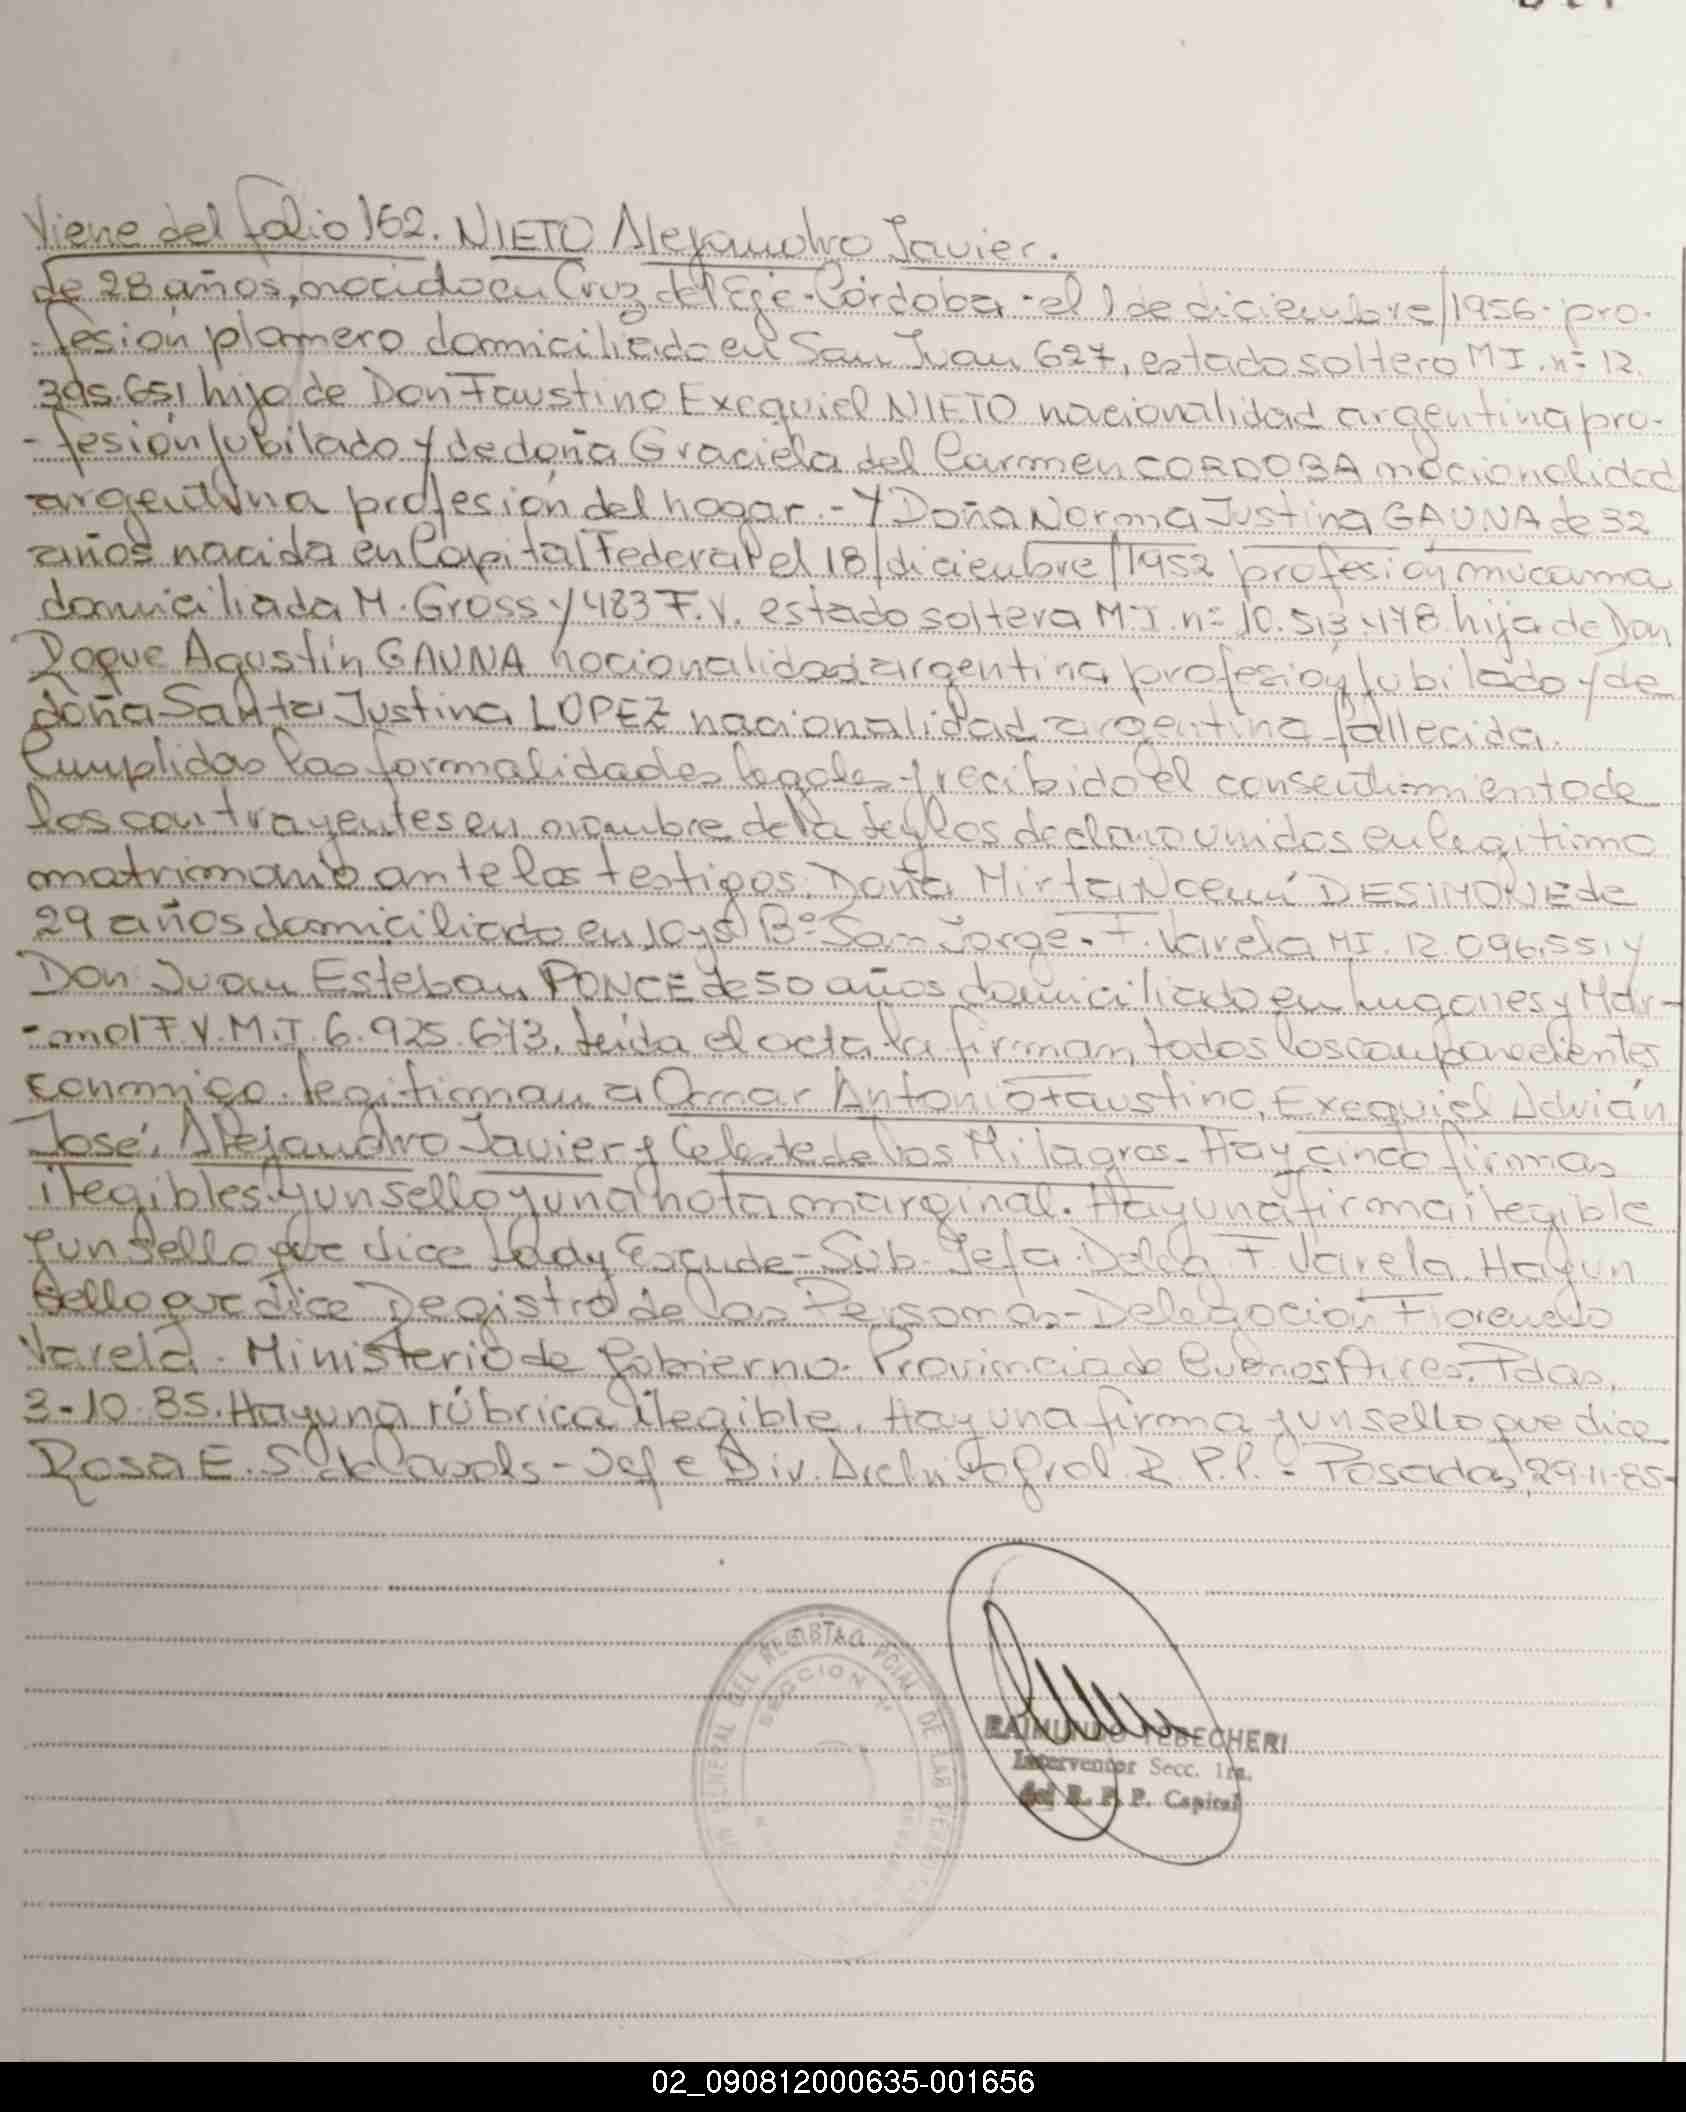 Viene del folio 162. NIETO Alejandro Javier.
de 28 años, nacido en Cruz del Eje-Córdoba-el 1 de diciembre/1956-pro-
-fesión plomero domiciliado en San Juan 627, estado soltero M I. n= 12.
395.651 hijo de Don Faustino Exequiel NIETO nacionalidad argentina pro-
-fesión jubilado y de doña Graciela del Carmen CORDOBA nacionalidad
argentina profesión del hogar.- Y Doña Norma Justina GAUNA de 32
años nacida en Capital Federal el 18/diciembre/1952 profesión mucama
domiciliada M. Gross y 483 F.V. estado soltera M.I. n= 10.513.478 hija de Don
Roque Agustín GAUNA nacionalidad argentina profesión jubilado y de
doña Santa Justina LOPEZ nacionalidad argentina fallecida.
Cumplidas las formalidades legales y recibido el consentimiento de
los contrayentes en nombre de la ley los declaro unidos en legitimo
matrimonio ante los testigos: Doña Mirta Noemí DESIMONE de
29 años domiciliado en Bº San Jorge. F. Varela MI. 12.096.551 y
Don Juan Esteban PONCE de 50 años domiciliado en Lugones y Mar-
-mol F.V. M.I. 6.925.673. Leída el acta la firman todos los comparecientes
conmigo. Legitiman a Omar Antonio Faustino, Exequiel Adrián
José, Alejandro Javier y Celeste de los Milagros. Hay cinco firmas
ilegibles y un sello y una nota marginal. Hay una firma ilegible
y un sello que dice Lady Escude-Sub-Jefa. Deleg. F. Varela. Hay un
sello que dice Registro de las Personas-Delegación Florencio
Varela. Ministerio de Gobierno. Provincia de Buenos Aires. Pdas,
3-10-85. Hay una rúbrica ilegible. Hay una firma y un sello que dice
Rosa E. S. de - Jefe Div. Arch. y Gral. R.P.P. - Posadas, 29-11-85-
GENERAL DEL REGISTRO PCIAL. DE LAS
SECCION 1ª
RAIMUNDO TEBECHERI
Interventor Secc. 1ra.
del R. P. P. Capital
02_090812000635-001656